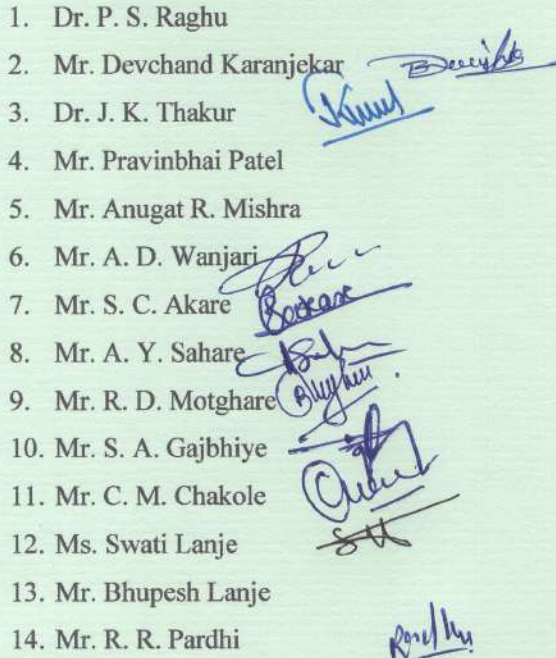 1. Dr. P. S. Raghu
2. Mr. Devchand Karanjekar
3. Dr. J. K. Thakur
4. Mr. Pravinbhai Patel
5. Mr. Anugat R. Mishra
6. Mr. A. D. Wanjari
7. Mr. S. C. Akare
8. Mr. A. Y. Sahare
9. Mr. R. D. Motghare
10. Mr. S. A. Gajbhiye
11. Mr. C. M. Chakole
12. Ms. Swati Lanje
13. Mr. Bhupesh Lanje
14. Mr. R. R. Pardhi